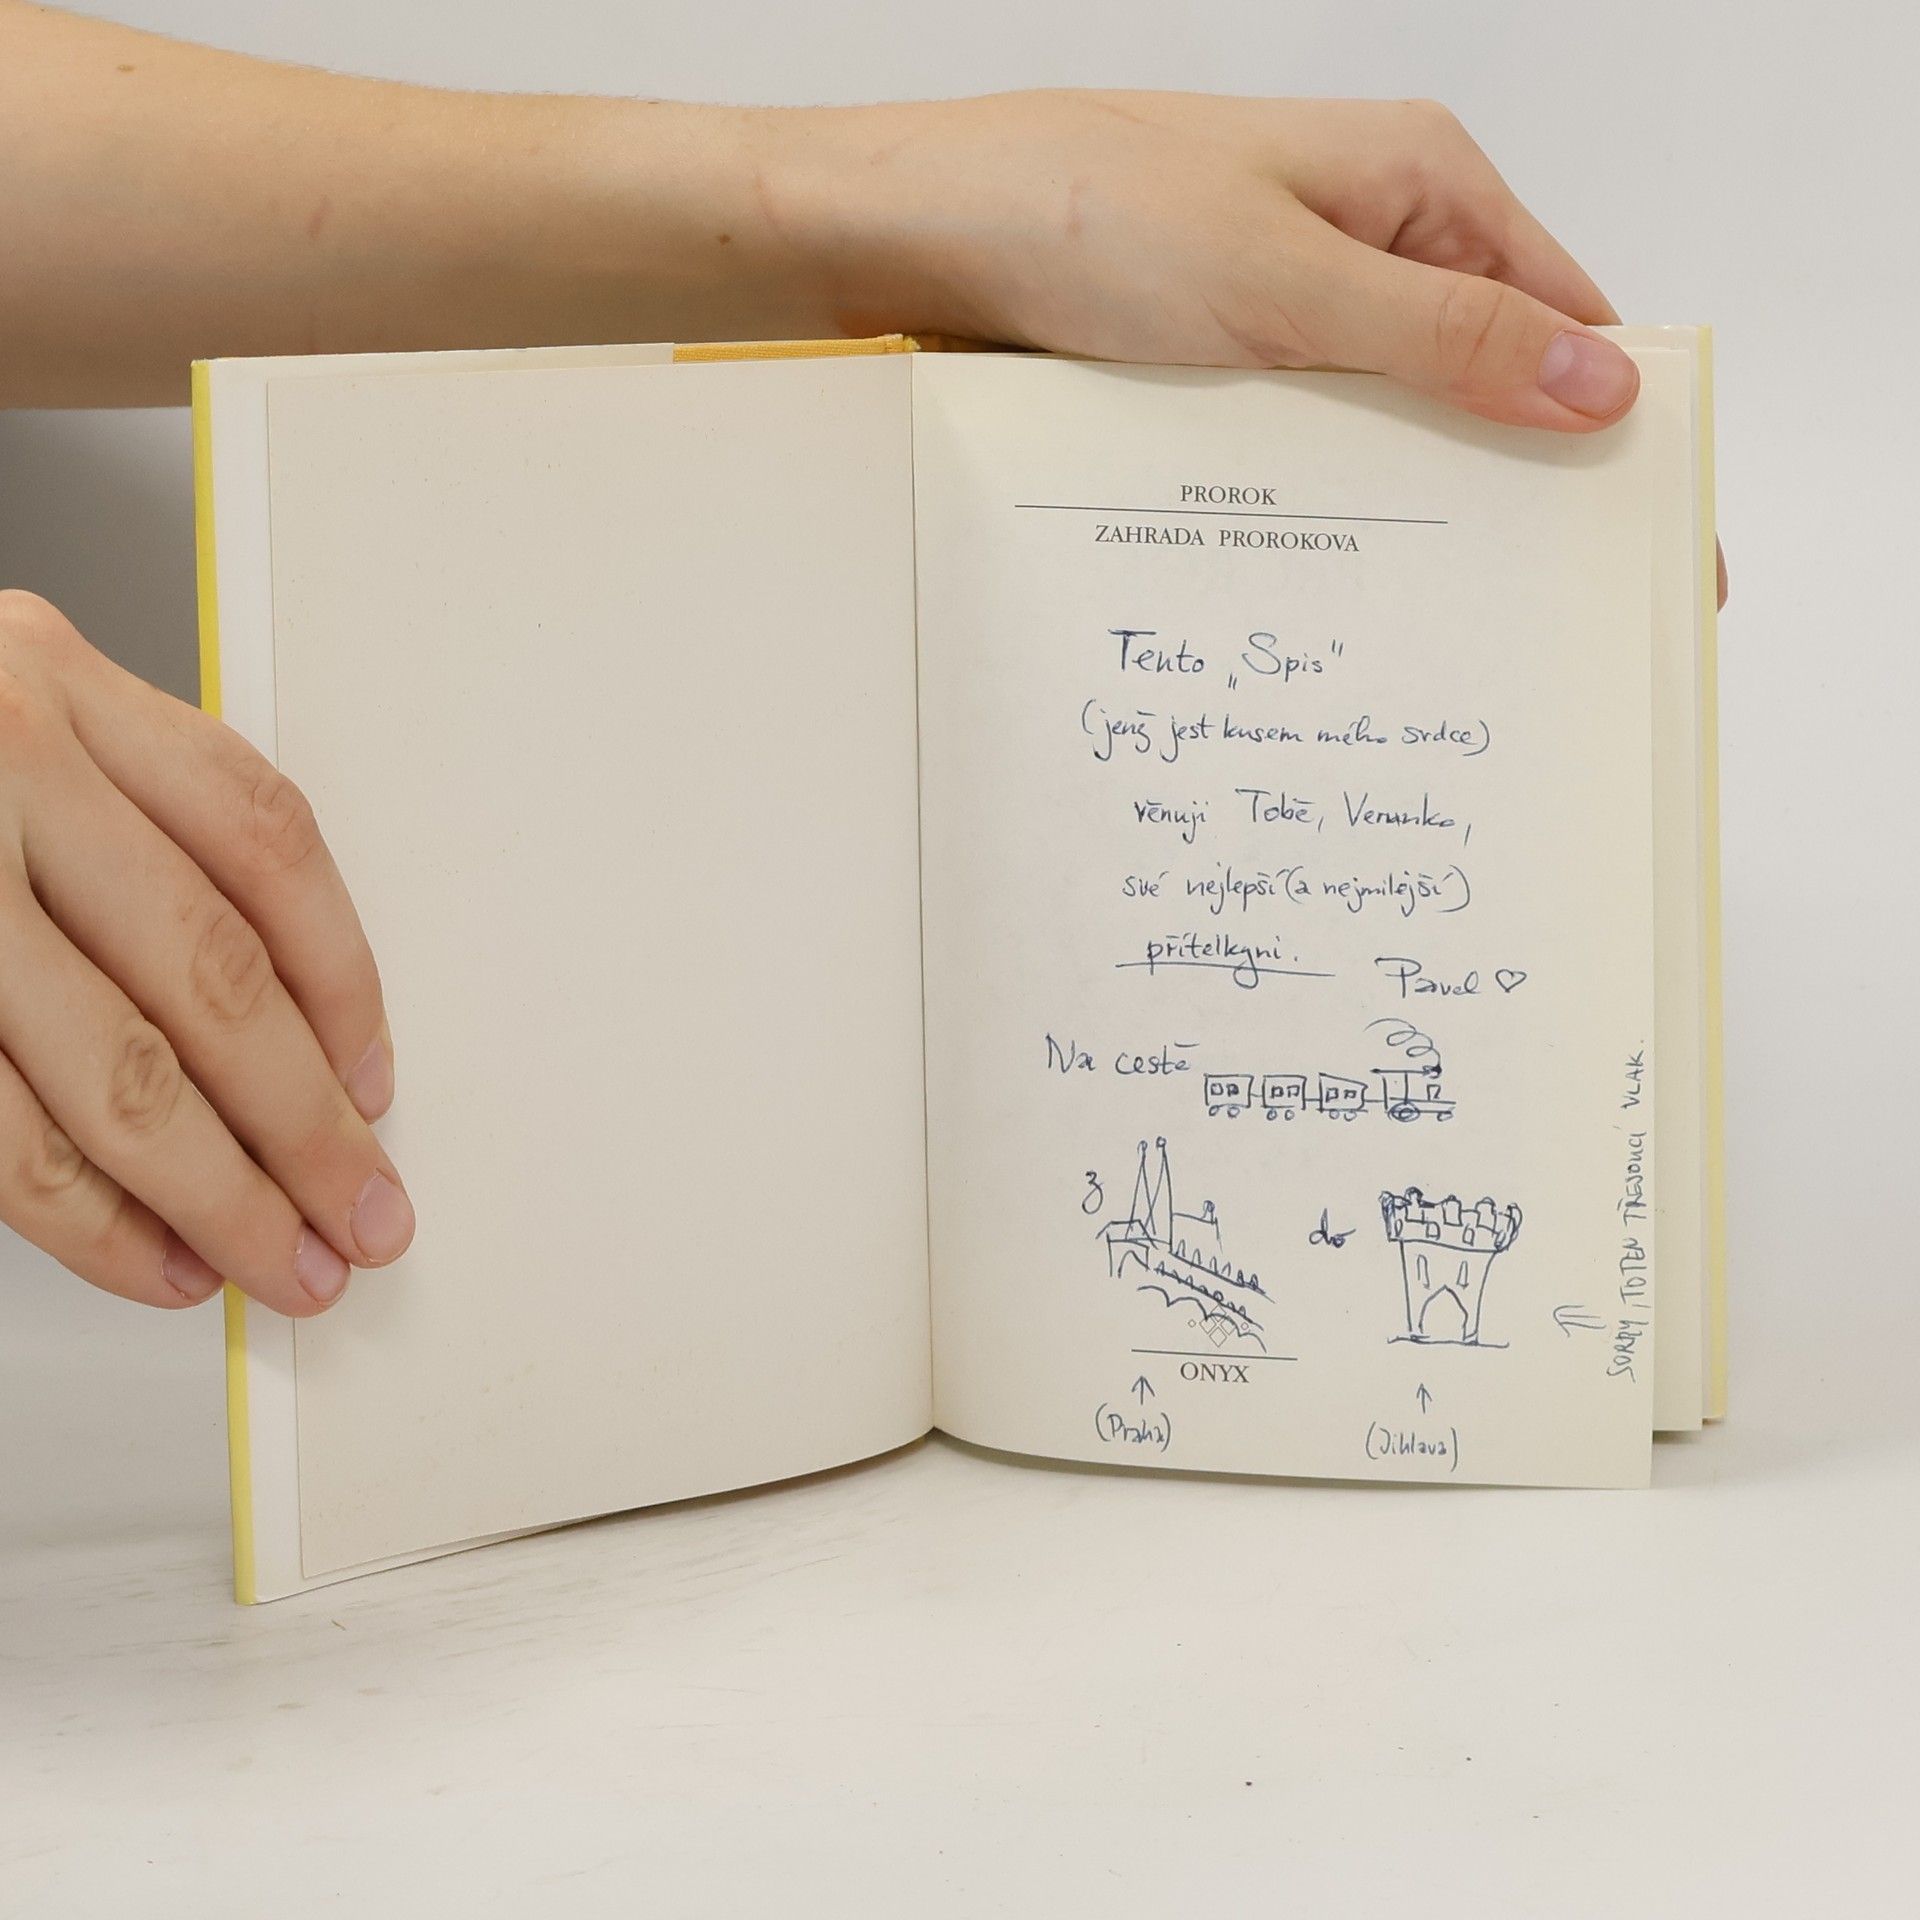 PROROK
ZAHRADA PROROKOVA
Tento „Spis"
(jenž jest kusem mého srdce)
věnuji Tobě, Verunko,
své nejlepší (a nejmilejší)
přítelkyni.
Pavel ♡
Na cestě
z
do
ONYX
↑
↑
(Praha)
(Jihlava)
SORRY, TOTEN TŘESOUCÍ VLAK.